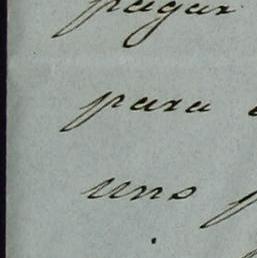 pagar
para
uno